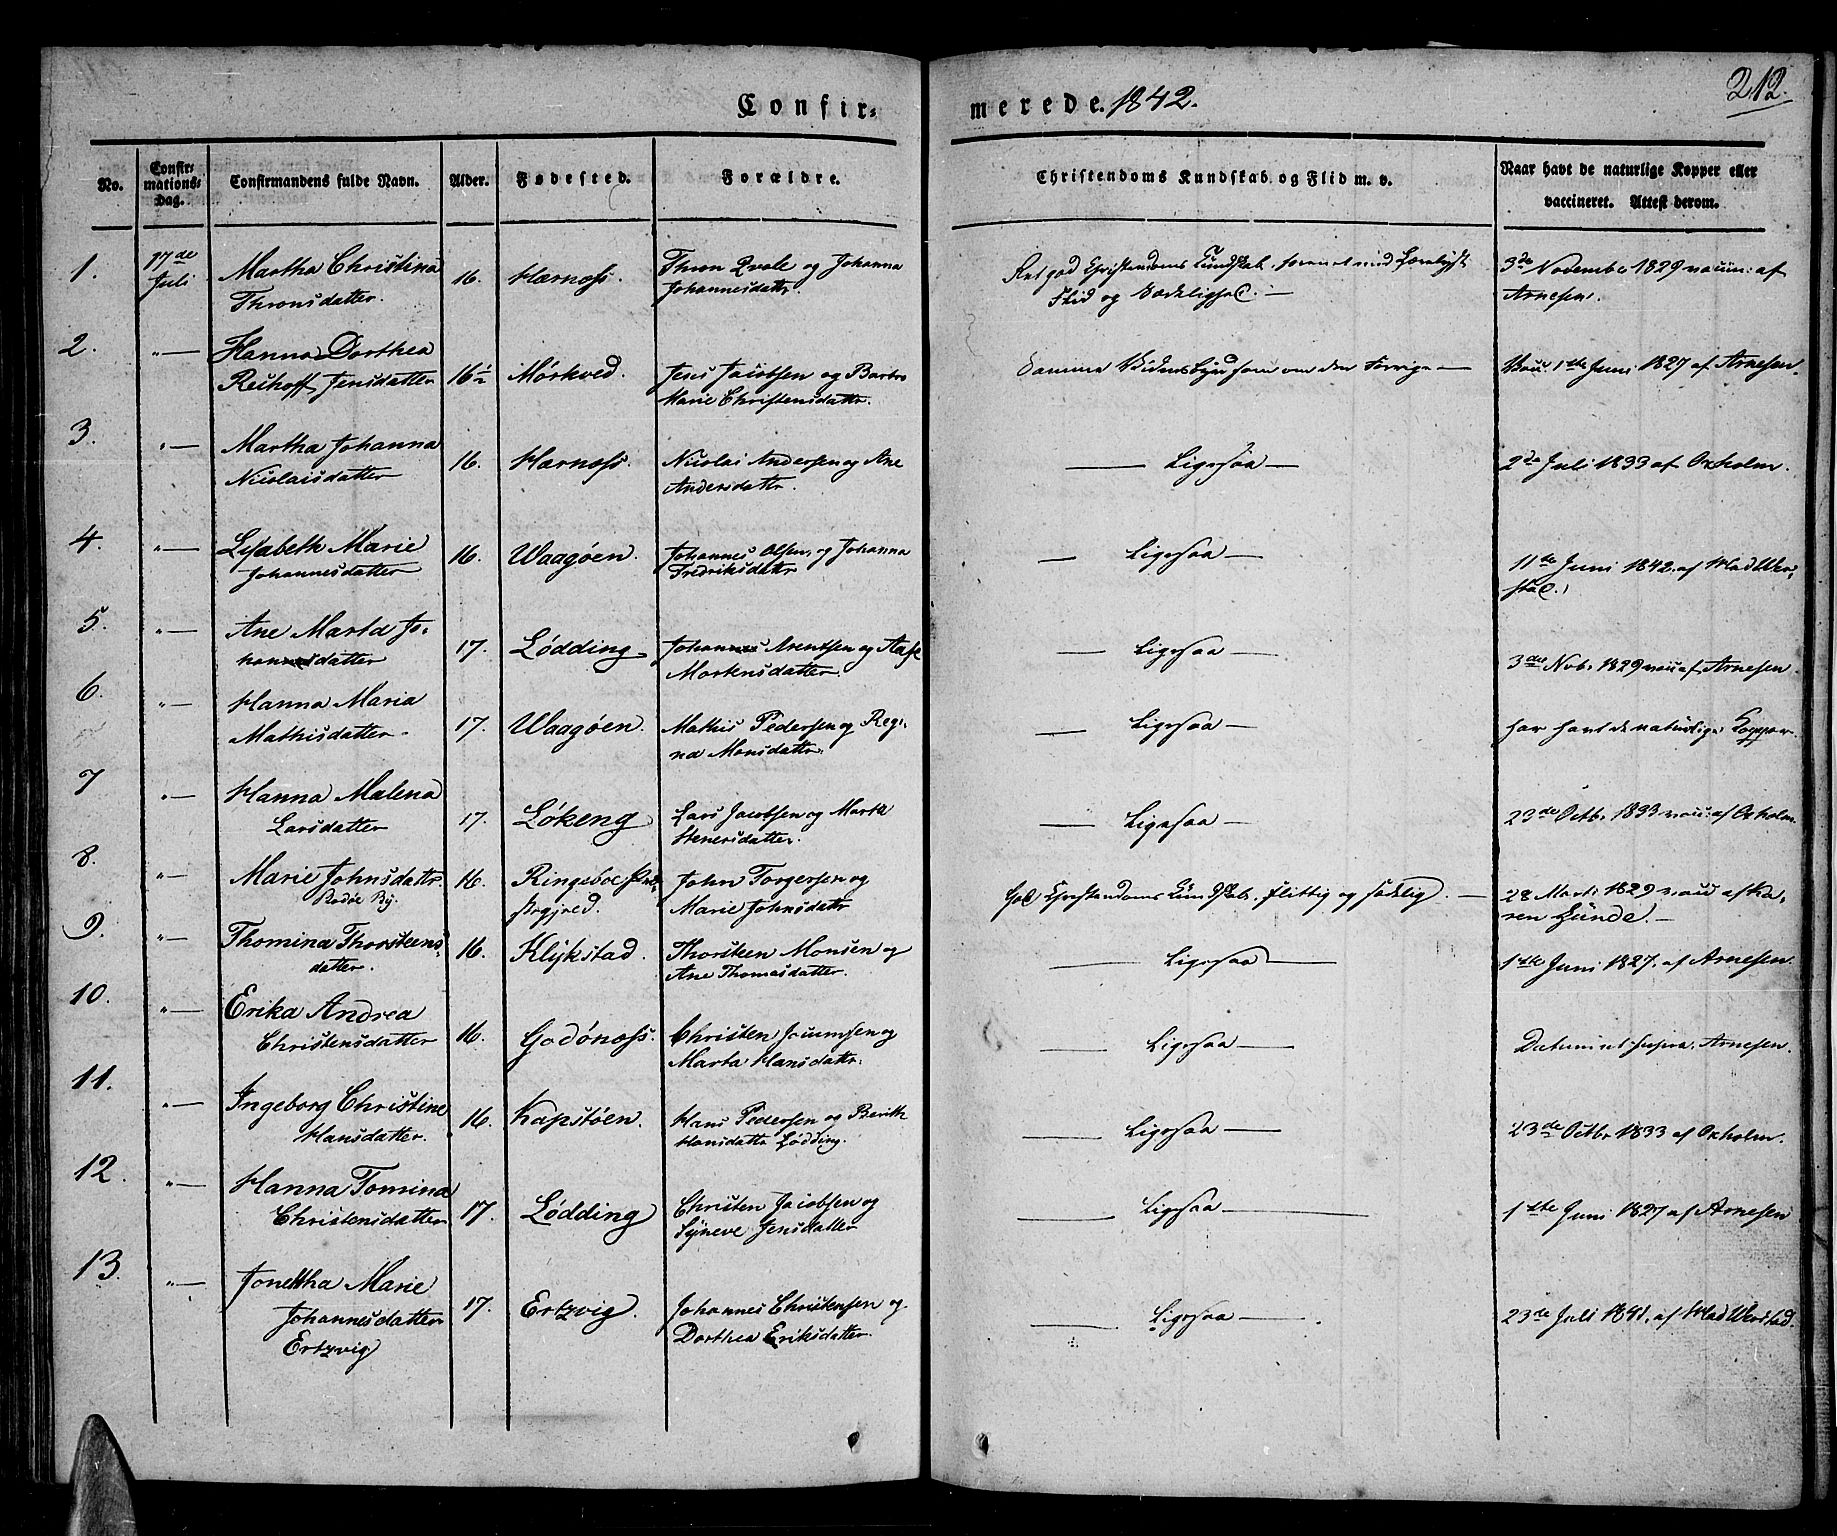 Confir-
merede. 1842.
212.
No.
Confir-
mations-
Dag.
Confirmandens fulde Navn.
Alder.
Fødested.
Forældre.
Christendoms Kundskab og Flid m. v.
Naar havt de naturlige Kopper eller
vaccineret. Attest derom.
1. 17de Juli
Martha Christina
Thronsdatter.
16. Hernæss.
Thron Qvale og Johanna
Johannesdattr.
Christendoms Kundskab, forenet med
Flid og Sædelighed. —
3de November 1829 vaccin: af
Arnesen.
2. " —
Hanna Dorthea
Reichoff Jensdatter
16½ Mørkved.
Jens Jacobsen og Barbro
Marie Christensdattr.
Samme Vidnesbyrd som om den Forrige —
1ste Juni 1827 af Arnesen.
3. " —
Martha Johanna
Nicolaisdatter
16. Hernæss.
Nicolai Andersen og Ane
Andersdattr.
— Ligesaa —
2de Juli 1833 af Oxholm.
4. " —
Lisabeth Marie
Johannesdatter
16. Waagøen.
Johannes Olsen og Johanna
Fredriksdattr
— Ligesaa —
11te Juni 1842 af Mad Wer-
stad.
5. " —
Ane Marta Jo-
hannesdatter
17. Lødding
Johannes Arentsen og Aase
Mortensdatter.
— Ligesaa —
3die Nob. 1829 vacc af Arnesen.
6. " —
Hanna Maria
Mathisdatter.
17. Waagøen.
Mathis Pedersen og Regi-
na Monsdattr.
— Ligesaa —
har havt de naturlige Kopper.
7 " —
Hanna Malena
Larsdatter
17. Løkeng
Lars Jacobsen og Marth
Stenersdatter.
— Ligesaa —
23de Octb. 1833 vacc: af Oxholm.
8. " —
Marie Johnsdattr.
Bodøe By.
16. Ringeboe Præ-
stegjeld.
John Torgersen og
Marie Johnsdattr
God Christendoms Kundskab, flittig og sædelig. —
28 Marts 1829 vacc af Ka-
ren Hünde. —
9. " —
Thomina Thorsteens-
datter.
16. Klykstad.
Thorsteen Monsen og
Ane Thomasdatter.
— Ligesaa —
1ste Juni 1827. af Arnesen.
10. " —
Erika Andrea
Christensdatter
16. Godønæss.
Christen Joiumsen og
Marta Hansdattr.
— Ligesaa —
Datum ut supra. Arnesen.
11. " —
Ingeborg Christine
Hansdatter.
16. Kapstøen.
Hans Pedersen og Berith
Hansdattr Lødding.
— Ligesaa —
23de Octbr 1833 af Oxholm.
12. " —
Hanna Tomina
Christensdatter
17. Lødding
Christen Jacobsen og
Syneve Jensdatter
— Ligesaa —
1ste Juni 1827 af Arnesen
13. " —
Jonettha Marie
Johannesdatter
Ertzvig
17. Ertzvig.
Johannes Christensen og
Dorthea Eriksdatter.
— Ligesaa —
23de Juli 1841. af Mad Werstad.